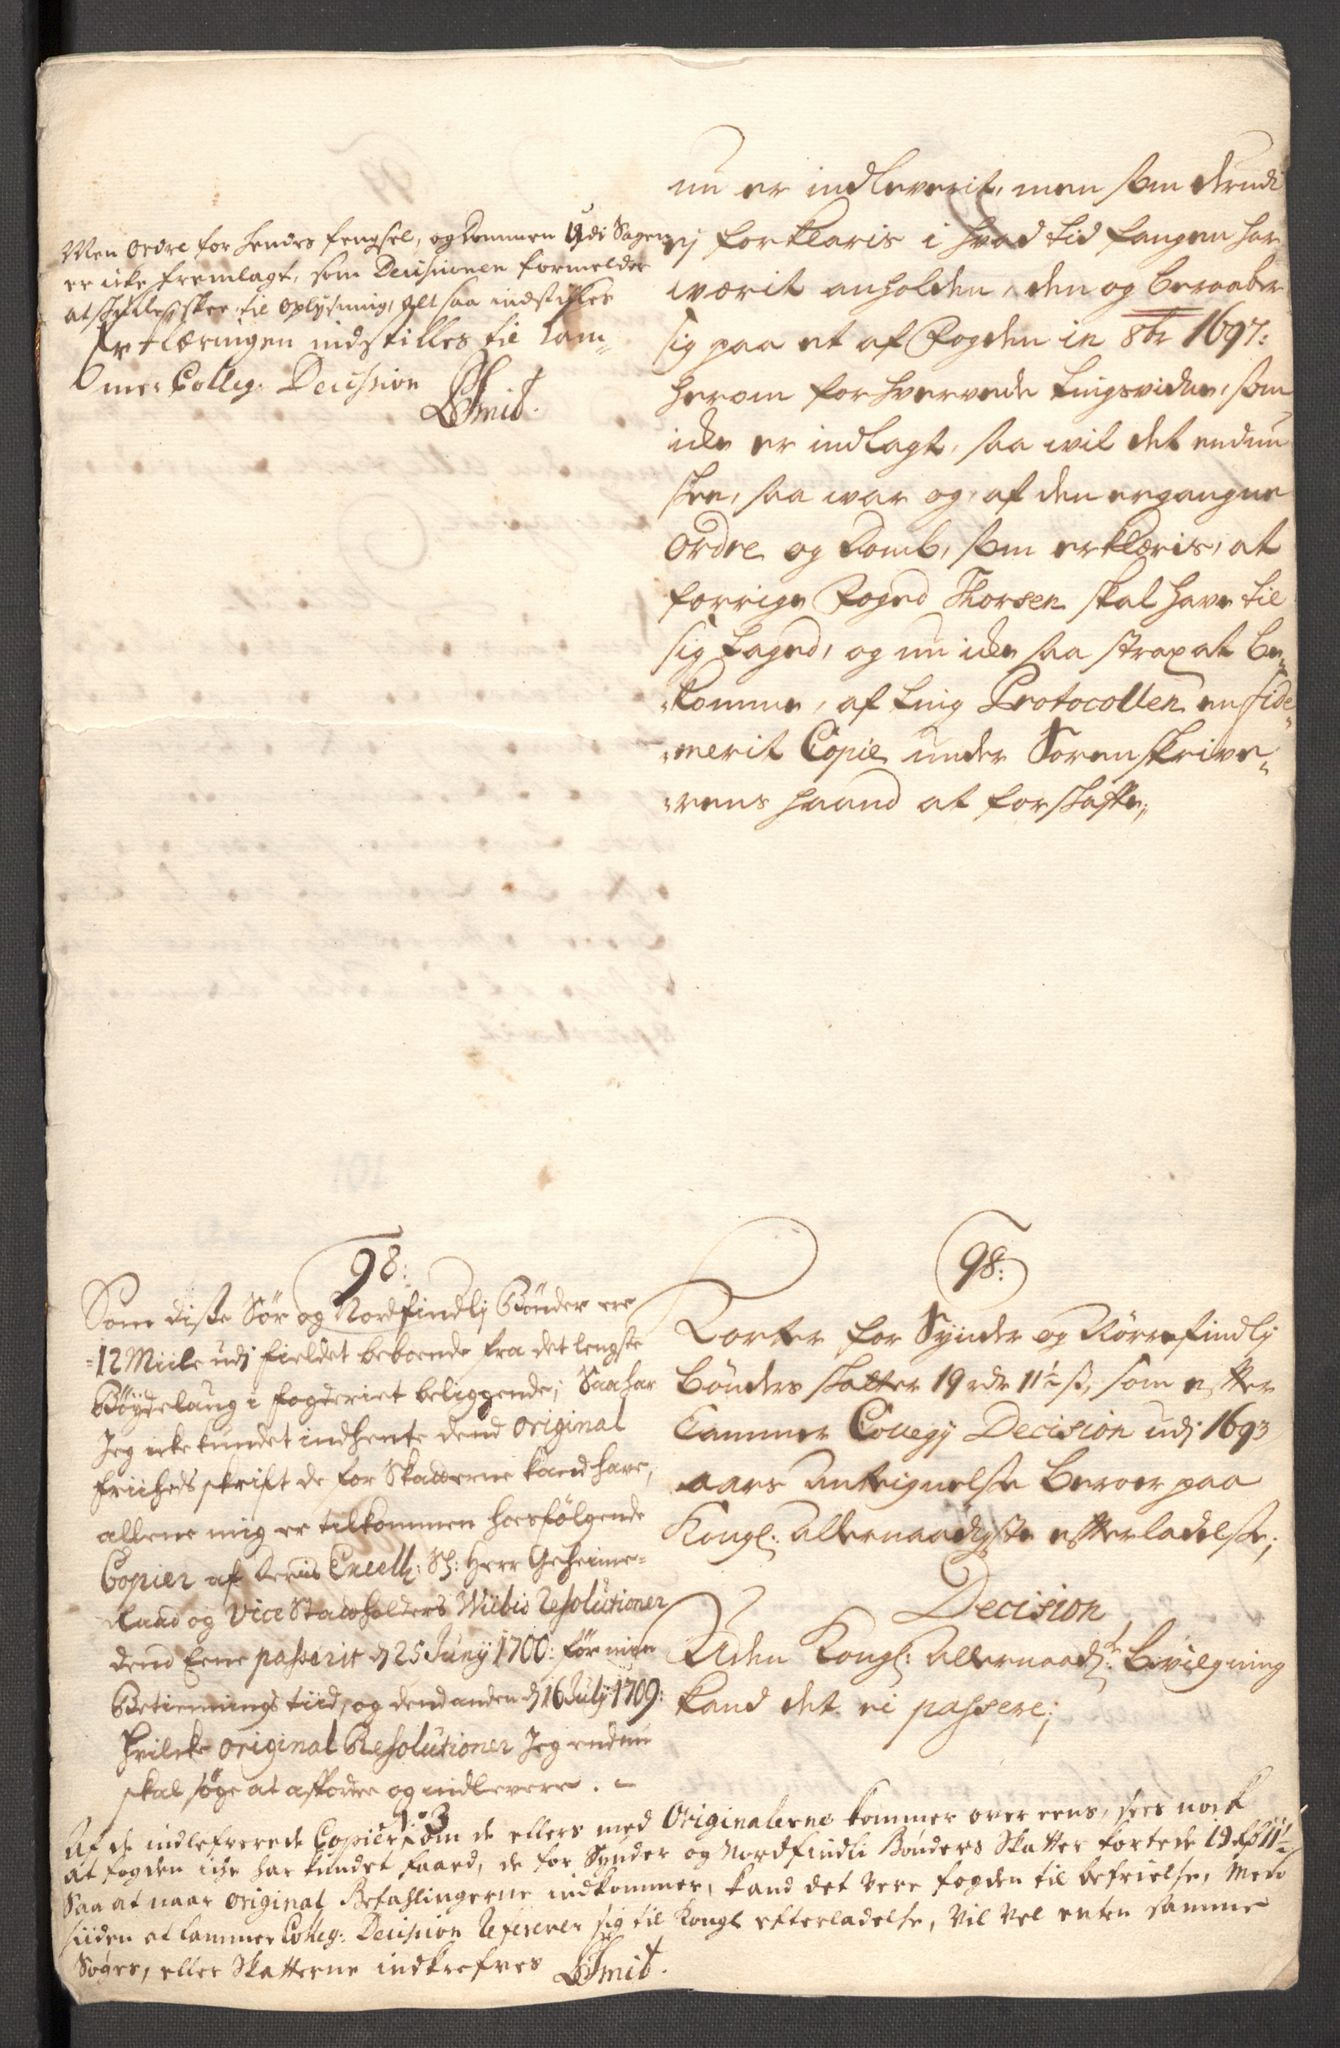 Men ordre for hendes fengsel, og dommen udi Sagen
er icke fremlagt, som Decisionen formelder
at skulle skee til oplysning, alt saa indstilles
Erklæringen indstilles til Cam-
mer Colleg: Decision
LSmit.
nu er indleverit, men som derudi
ej forklaris i hvad tid fangen har
wærit anholden, den og beraaber
sig paa et af Fogden in 8br 1697:
herom forhvervede tingsvidne, som
icke er indlagt, saa wil det endnu
skee, saa war og, af den ergangne
ordre og Domb, som erklæris, at
forrige Foged Thorsen skal have til
sig taged, og nu icke saa strax at be-
komme, af ting Protocollen en fide-
merit Copie under Sorenskrive-
rens haand at forskaffe;
98:
Som disse Sør og Nordfindlj Bønder ere
12 Miile udj fieldet beboende fra det lengste
Bøydelaug i fogderiet beliggende; Saa har
Jeg icke kundet indhente dend original
friiheds skrift de for Skatterne kand have,
allene mig er tilkommen hosfølgende
Copier af deris Excell: Sl: Herr Geheime-
Raad og Vice Statholders Wiibis Resolutioner
dend Eene passerit d 25 Junij 1700: før min
Betienings tiid, og dend anden d 16 Julij 1709:
hvilcke original Resolutioner Jeg endnu
skal søge at affordre og indlevere.
98:
Korter for Synder og Nørrefindlj
Bønders skatter 19 rdr 11½ s, som efter
Cammer Collegij Decision udj 1693
aars antegnelse beroer paa
Kongl: allernaadigste efterladelse;
Decision
Uden Kongl: allernaadste: bevilgning
kand det ei passere;
Af de indlefverede Copier, som de ellers med Originalerne kommer over eens, sees nock
at fogden icke har kundet faaed, de for Synder og Nordfindli Bønders Skatter forte de 19 rd 11½
Saa at naar original Befahlingerne indkommer, kand det vere fogden til befrielse, Mens
siiden at Cammer Colleg: Decision Refererer sig til Kongl efterladelse, Vil vel enten samme
Søges, eller Skatterne indkrefves LSmit.